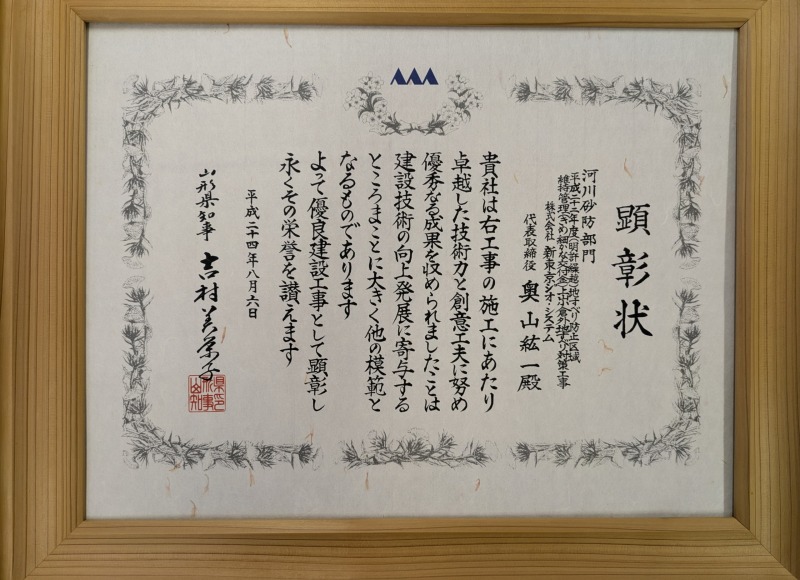 顕彰状
河川砂防部門
平成二十二年度(明許繰越)地すべり防止区域
維持管理(きめ細かな交付金)上小倉外地すべり対策工事
株式会社 新東京ジオ・システム
代表取締役 奥山紘一殿
貴社は右工事の施工にあたり
卓越した技術力と創意工夫に努め
優秀なる成果を収められましたことは
建設技術の向上発展に寄与する
ところまことに大きく他の模範と
なるものであります
よって優良建設工事として顕彰し
永くその栄誉を讃えます
平成二十四年八月六日
山形県知事 吉村美栄子